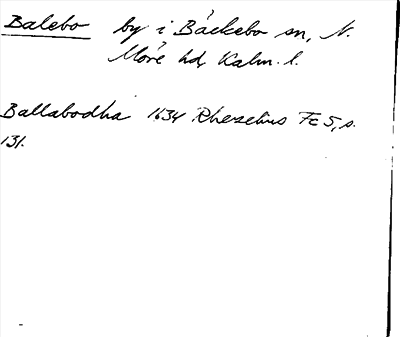 Balebo by i Bäckebo sn, N.
Möre hd, Kalm. l.
Ballabodha 1634 Rhezelius Fc 5, s.
131.